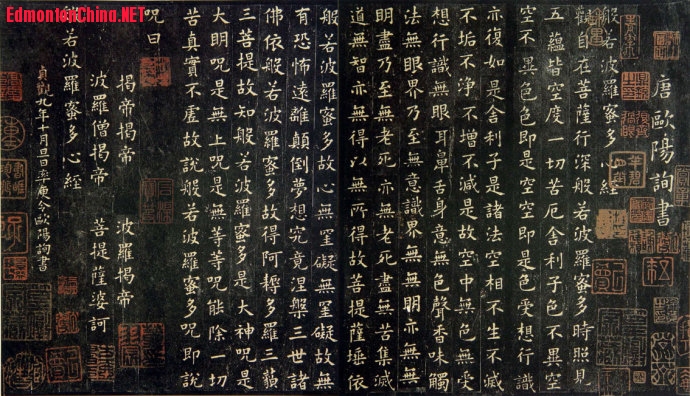 EdmontonChina.NET
唐歐陽詢書
般若波羅蜜多心經
觀自在菩薩行深般若波羅蜜多時照見
五蘊皆空度一切苦厄舍利子色不異空
空不異色色即是空空即是色受想行識
亦復如是舍利子是諸法空相不生不滅
不垢不淨不增不減是故空中無色無受
想行識無眼耳鼻舌身意無色聲香味觸
法無眼界乃至無意識界無無明亦無無
明盡乃至無老死亦無老死盡無苦集滅
道無智亦無得以無所得故菩提薩埵依
般若波羅蜜多故心無罣礙無罣礙故無
有恐怖遠離顛倒夢想究竟涅槃三世諸
佛依般若波羅蜜多故得阿耨多羅三藐
三菩提故知般若波羅蜜多是大神呪是
大明呪是無上呪是無等等呪能除一切
苦真實不虛故說般若波羅蜜多呪即說
呪曰
揭帝揭帝 波羅揭帝
波羅僧揭帝 菩提薩婆訶
般若波羅蜜多心經
貞觀九年十月旦日率更令歐陽詢書